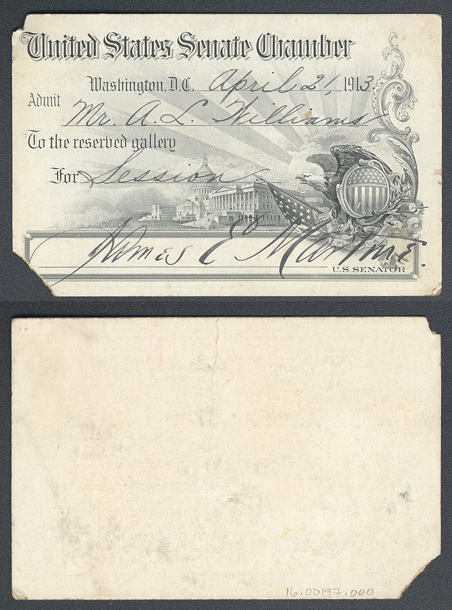 United States Senate Chamber
Washington, D.C. April 21, 1913.
Admit Mr. A. L. Williams
To the reserved gallery
For Session
James E. Martine.
U.S. SENATOR
16.00197.000